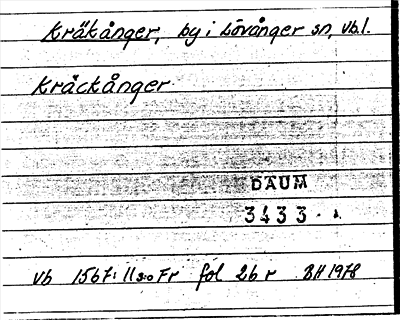 Kräkånger, by i Lövånger sn, vb.l.
Kråckånger
DAUM
3433
vb 1567: 11 s:o Fr fol 26 r BH 1978